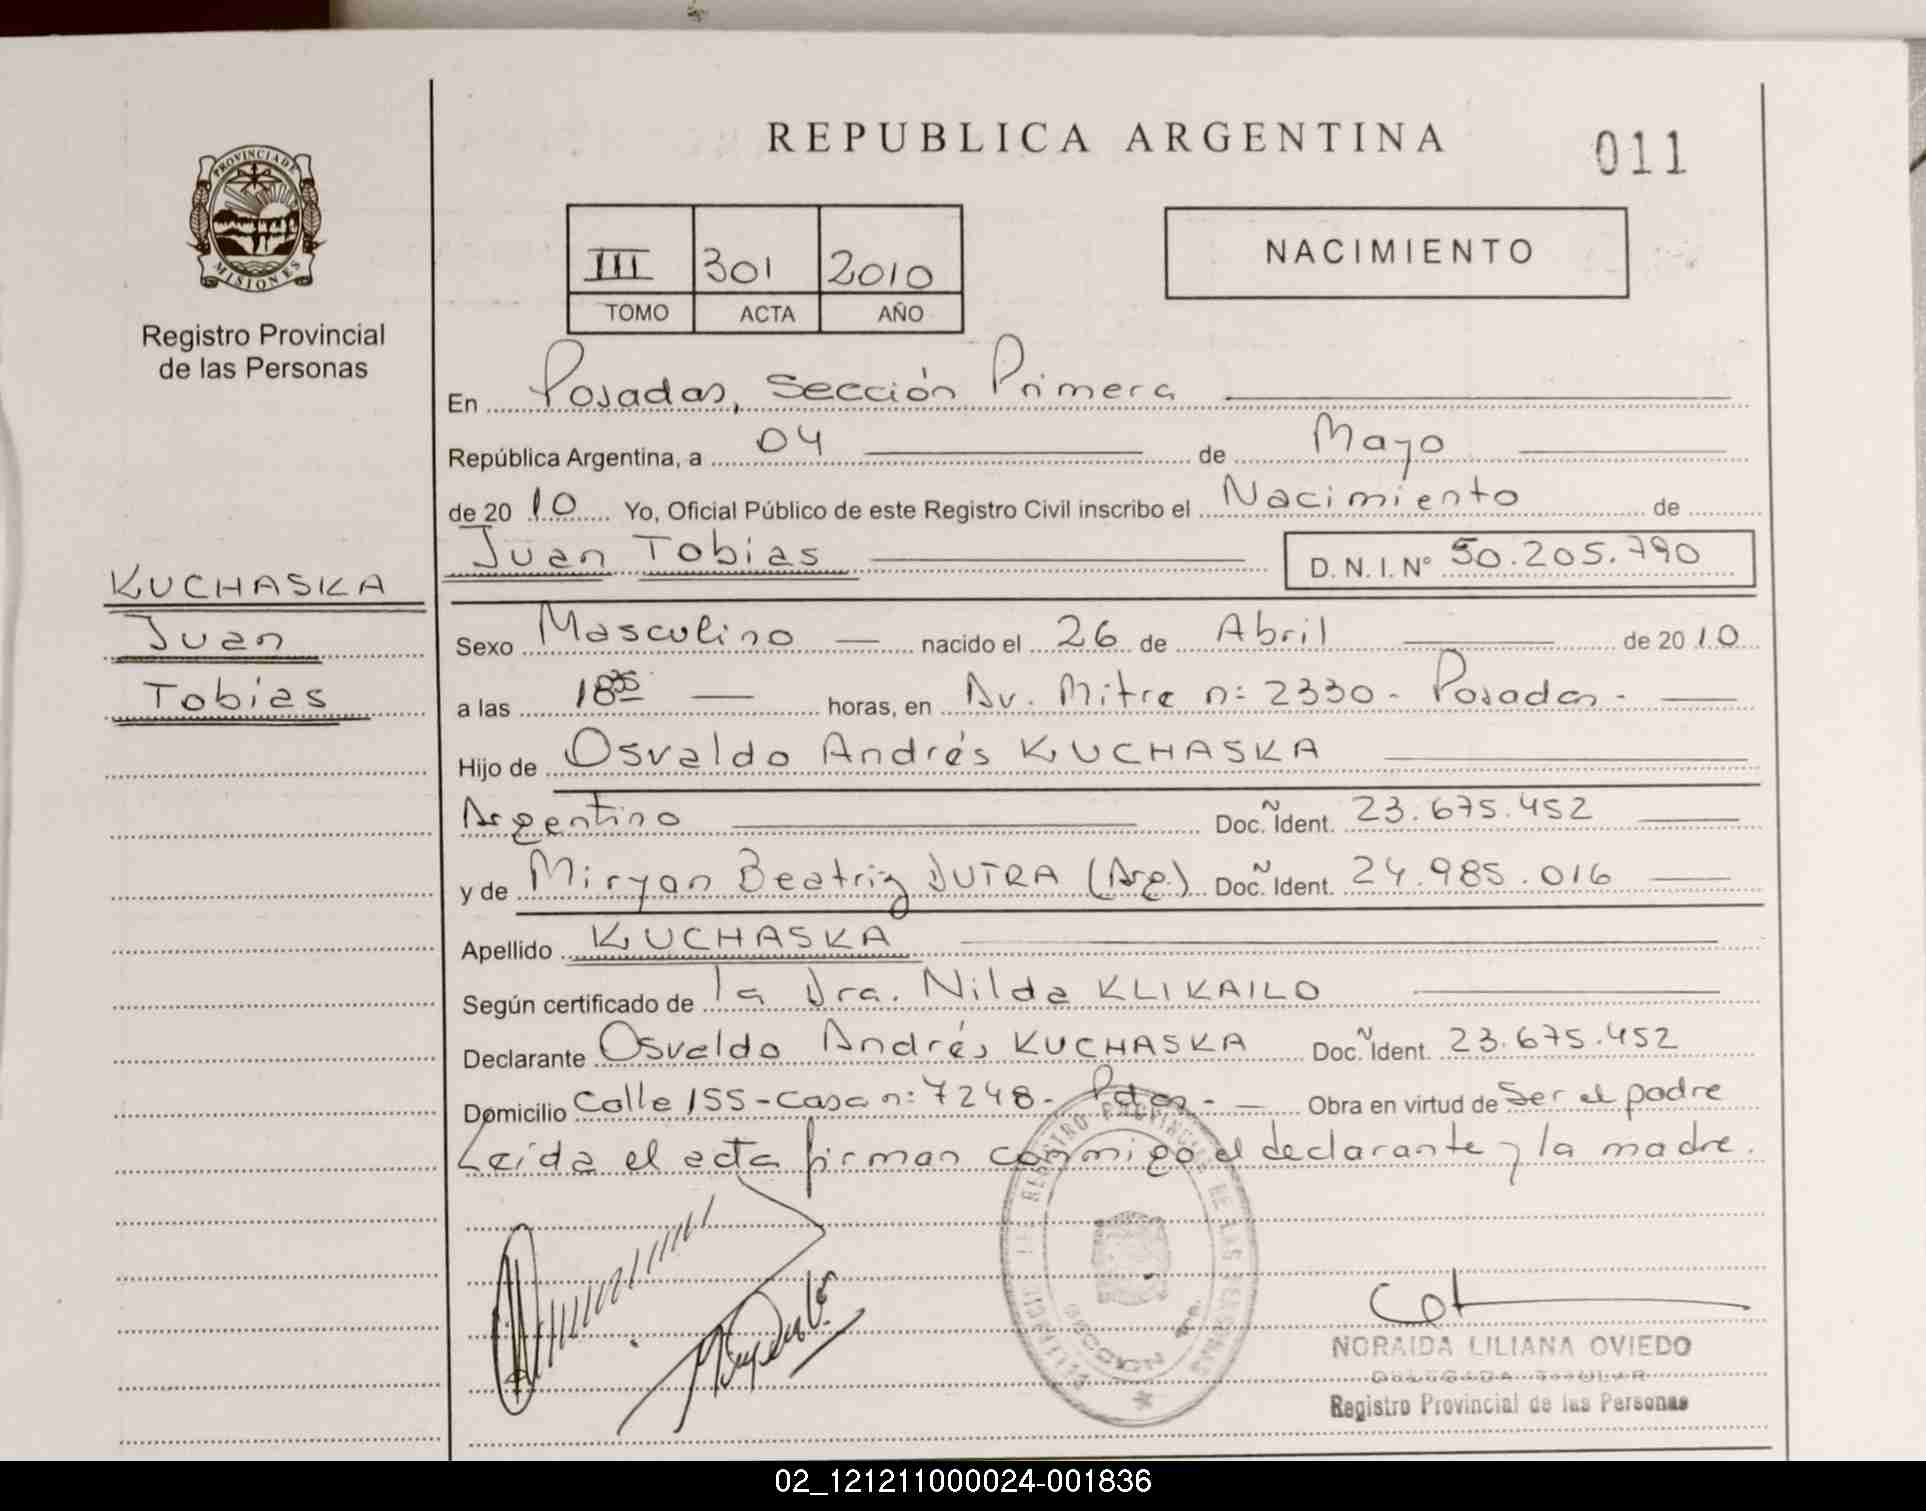 REPUBLICA ARGENTINA
011
PROVINCIA DE
MISIONES
Registro Provincial
de las Personas
III 301 2010
TOMO ACTA AÑO
NACIMIENTO
En Posadas, Sección Primera
República Argentina, a 04 de Mayo
de 2010 Yo, Oficial Público de este Registro Civil inscribo el Nacimiento de
Juan Tobias D. N. I. Nº 50.205.790
KUCHASKA
Juan
Tobias
Sexo Masculino nacido el 26 de Abril de 2010
a las 18 35 horas, en Av. Mitre n: 2330 - Posadas -
Hijo de Osvaldo Andrés KUCHASKA
Argentino Doc. Ñ Ident. 23.675.452
y de Miryan Beatriz DUTRA (Arg.) Doc. Ñ Ident. 24.985.016
Apellido KUCHASKA
Según certificado de la Dra. Nilda KLIKAILO
Declarante Osvaldo Andrés KUCHASKA Doc. Ñ Ident. 23.675.452
Domicilio Calle 155 - Casa n: 7248 - Pdas - Obra en virtud de ser el padre
Leída el acta firman conmigo el declarante y la madre.
REGISTRO PROVINCIAL DE LAS PERSONAS
SECCION 1ra.
NORAIDA LILIANA OVIEDO
DELEGADA TITULAR
Registro Provincial de las Personas
02_121211000024-001836